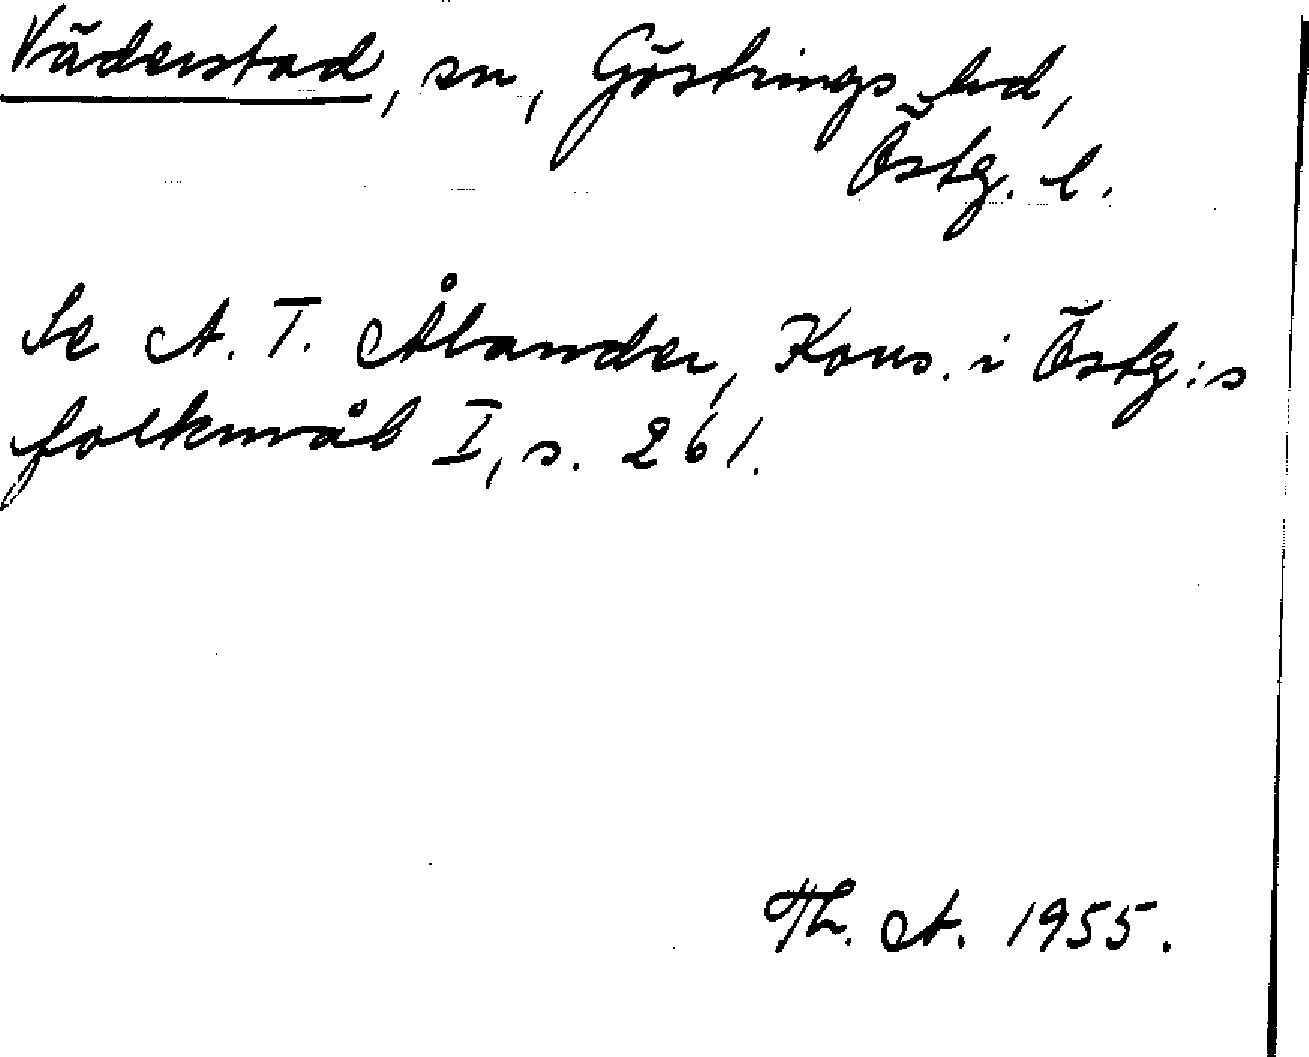 Väderstad, sn, Göstrings hd,
Östg. l.
Se A. T. Ålander, Kons. i Östg:s
folkmål I, s. 261.
Th. A. 1955.